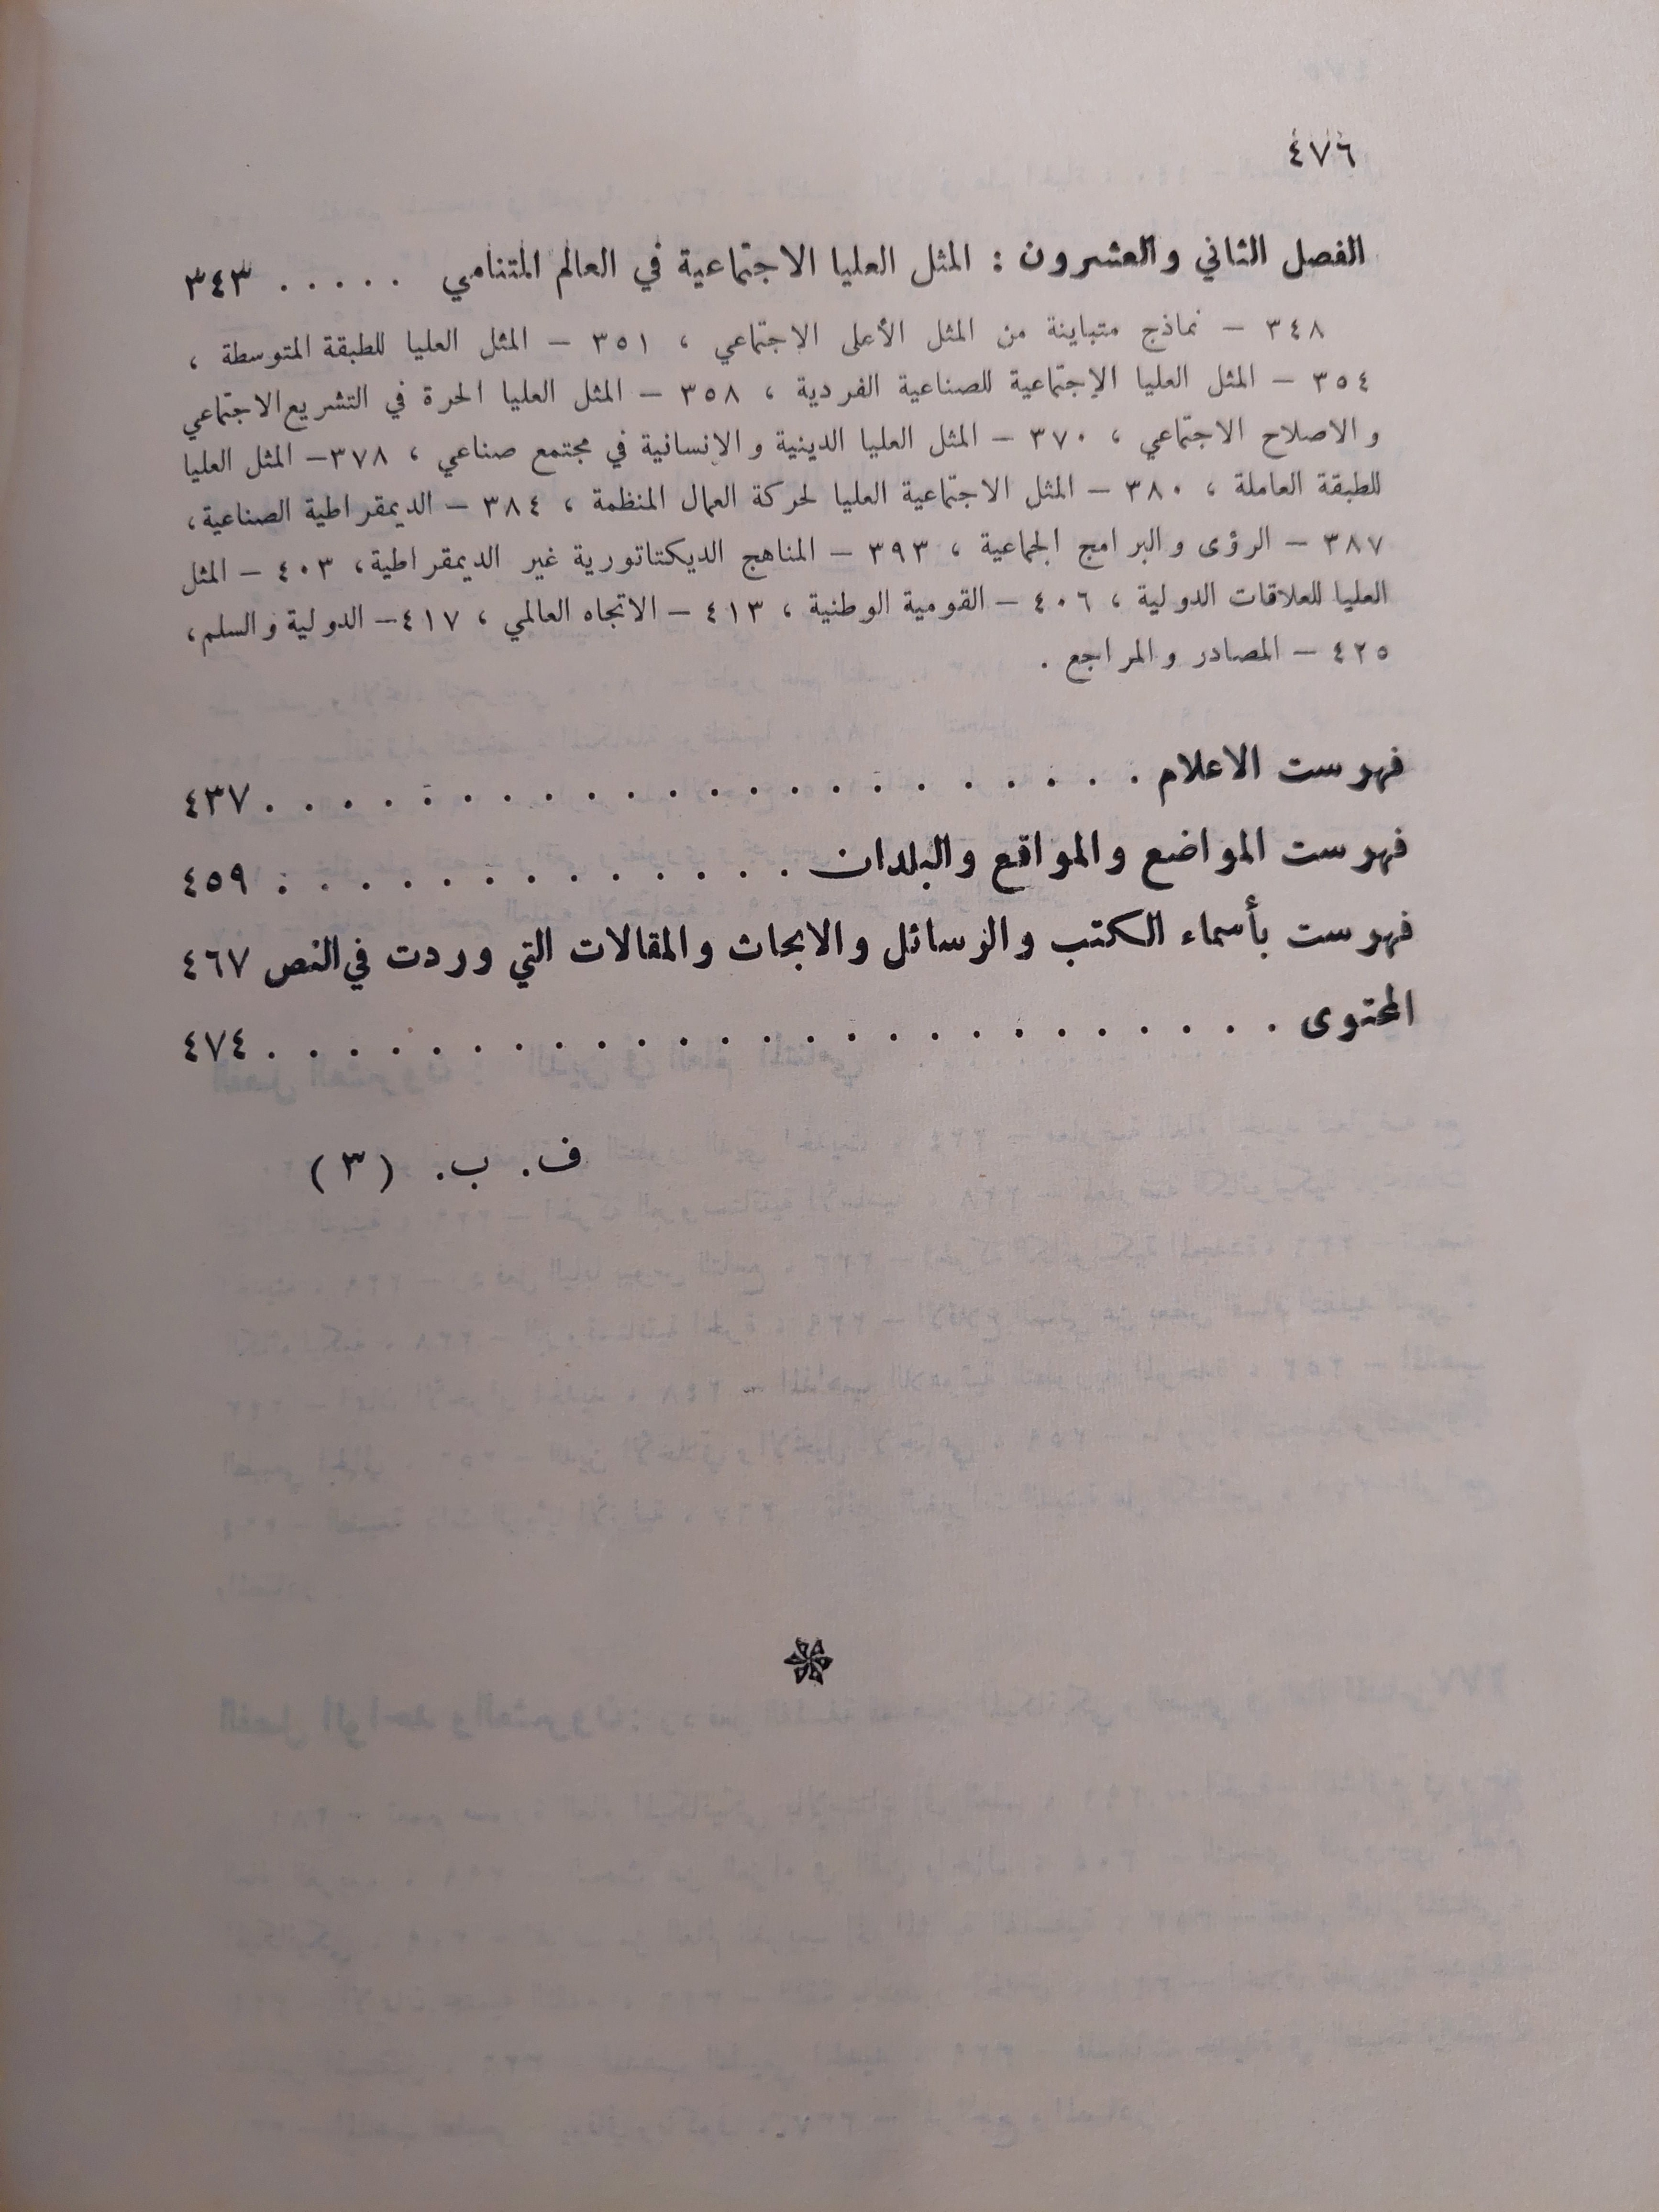 ٤٧٦
الفصل الثاني والعشرون : المثل العليا الاجتماعية في العالم المتنامي . . . . . ٣٤٣
٣٤٨ – نماذج متباينة من المثل الأعلى الاجتماعي ، ٣٥١ – المثل العليا للطبقة المتوسطة ،
٣٥٤ – المثل العليا الإجتماعية للصناعية الفردية ، ٣٥٨ – المثل العليا الحرة في التشريع الاجتماعي
والاصلاح الاجتماعي ، ٣٧٠ – المثل العليا الدينية والإنسانية في مجتمع صناعي ، ٣٧٨– المثل العليا
للطبقة العاملة ، ٣٨٠ – المثل الاجتماعية العليا لحركة العمال المنظمة ، ٣٨٤ – الديمقراطية الصناعية،
٣٨٧ – الرؤى والبرامج الجماعية ، ٣٩٣ – المناهج الديكتاتورية غير الديمقراطية، ٤٠٣ – المثل
العليا للعلاقات الدولية ، ٤٠٦ – القومية الوطنية ، ٤١٣ – الاتجاه العالمي ، ٤١٧– الدولية والسلم،
٤٢٥ – المصادر والمراجع .
فهرست الاعلام . . . . . . . . . . . . . . . . . . . . . . ٤٣٧
فهرست المواضع والمواقع والبلدان . . . . . . . . . . . . . ٤٥٩
فهرست بأسماء الكتب والرسائل والابحاث والمقالات التي وردت في النص ٤٦٧
المحتوى . . . . . . . . . . . . . . . . . . . . . . . . . ٤٧٤
ف. ب. (٣)